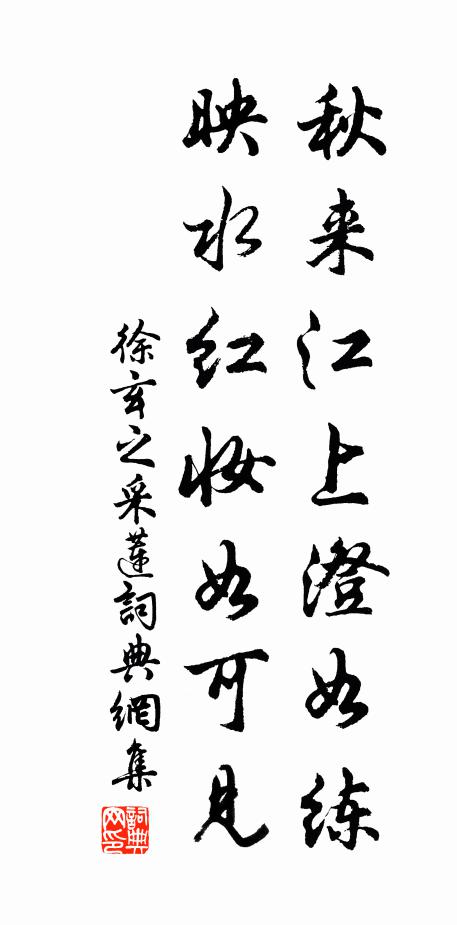 秋来江上澄如练
映水红妆如可见
徐玄之采蓮詞典網集
詞典网印